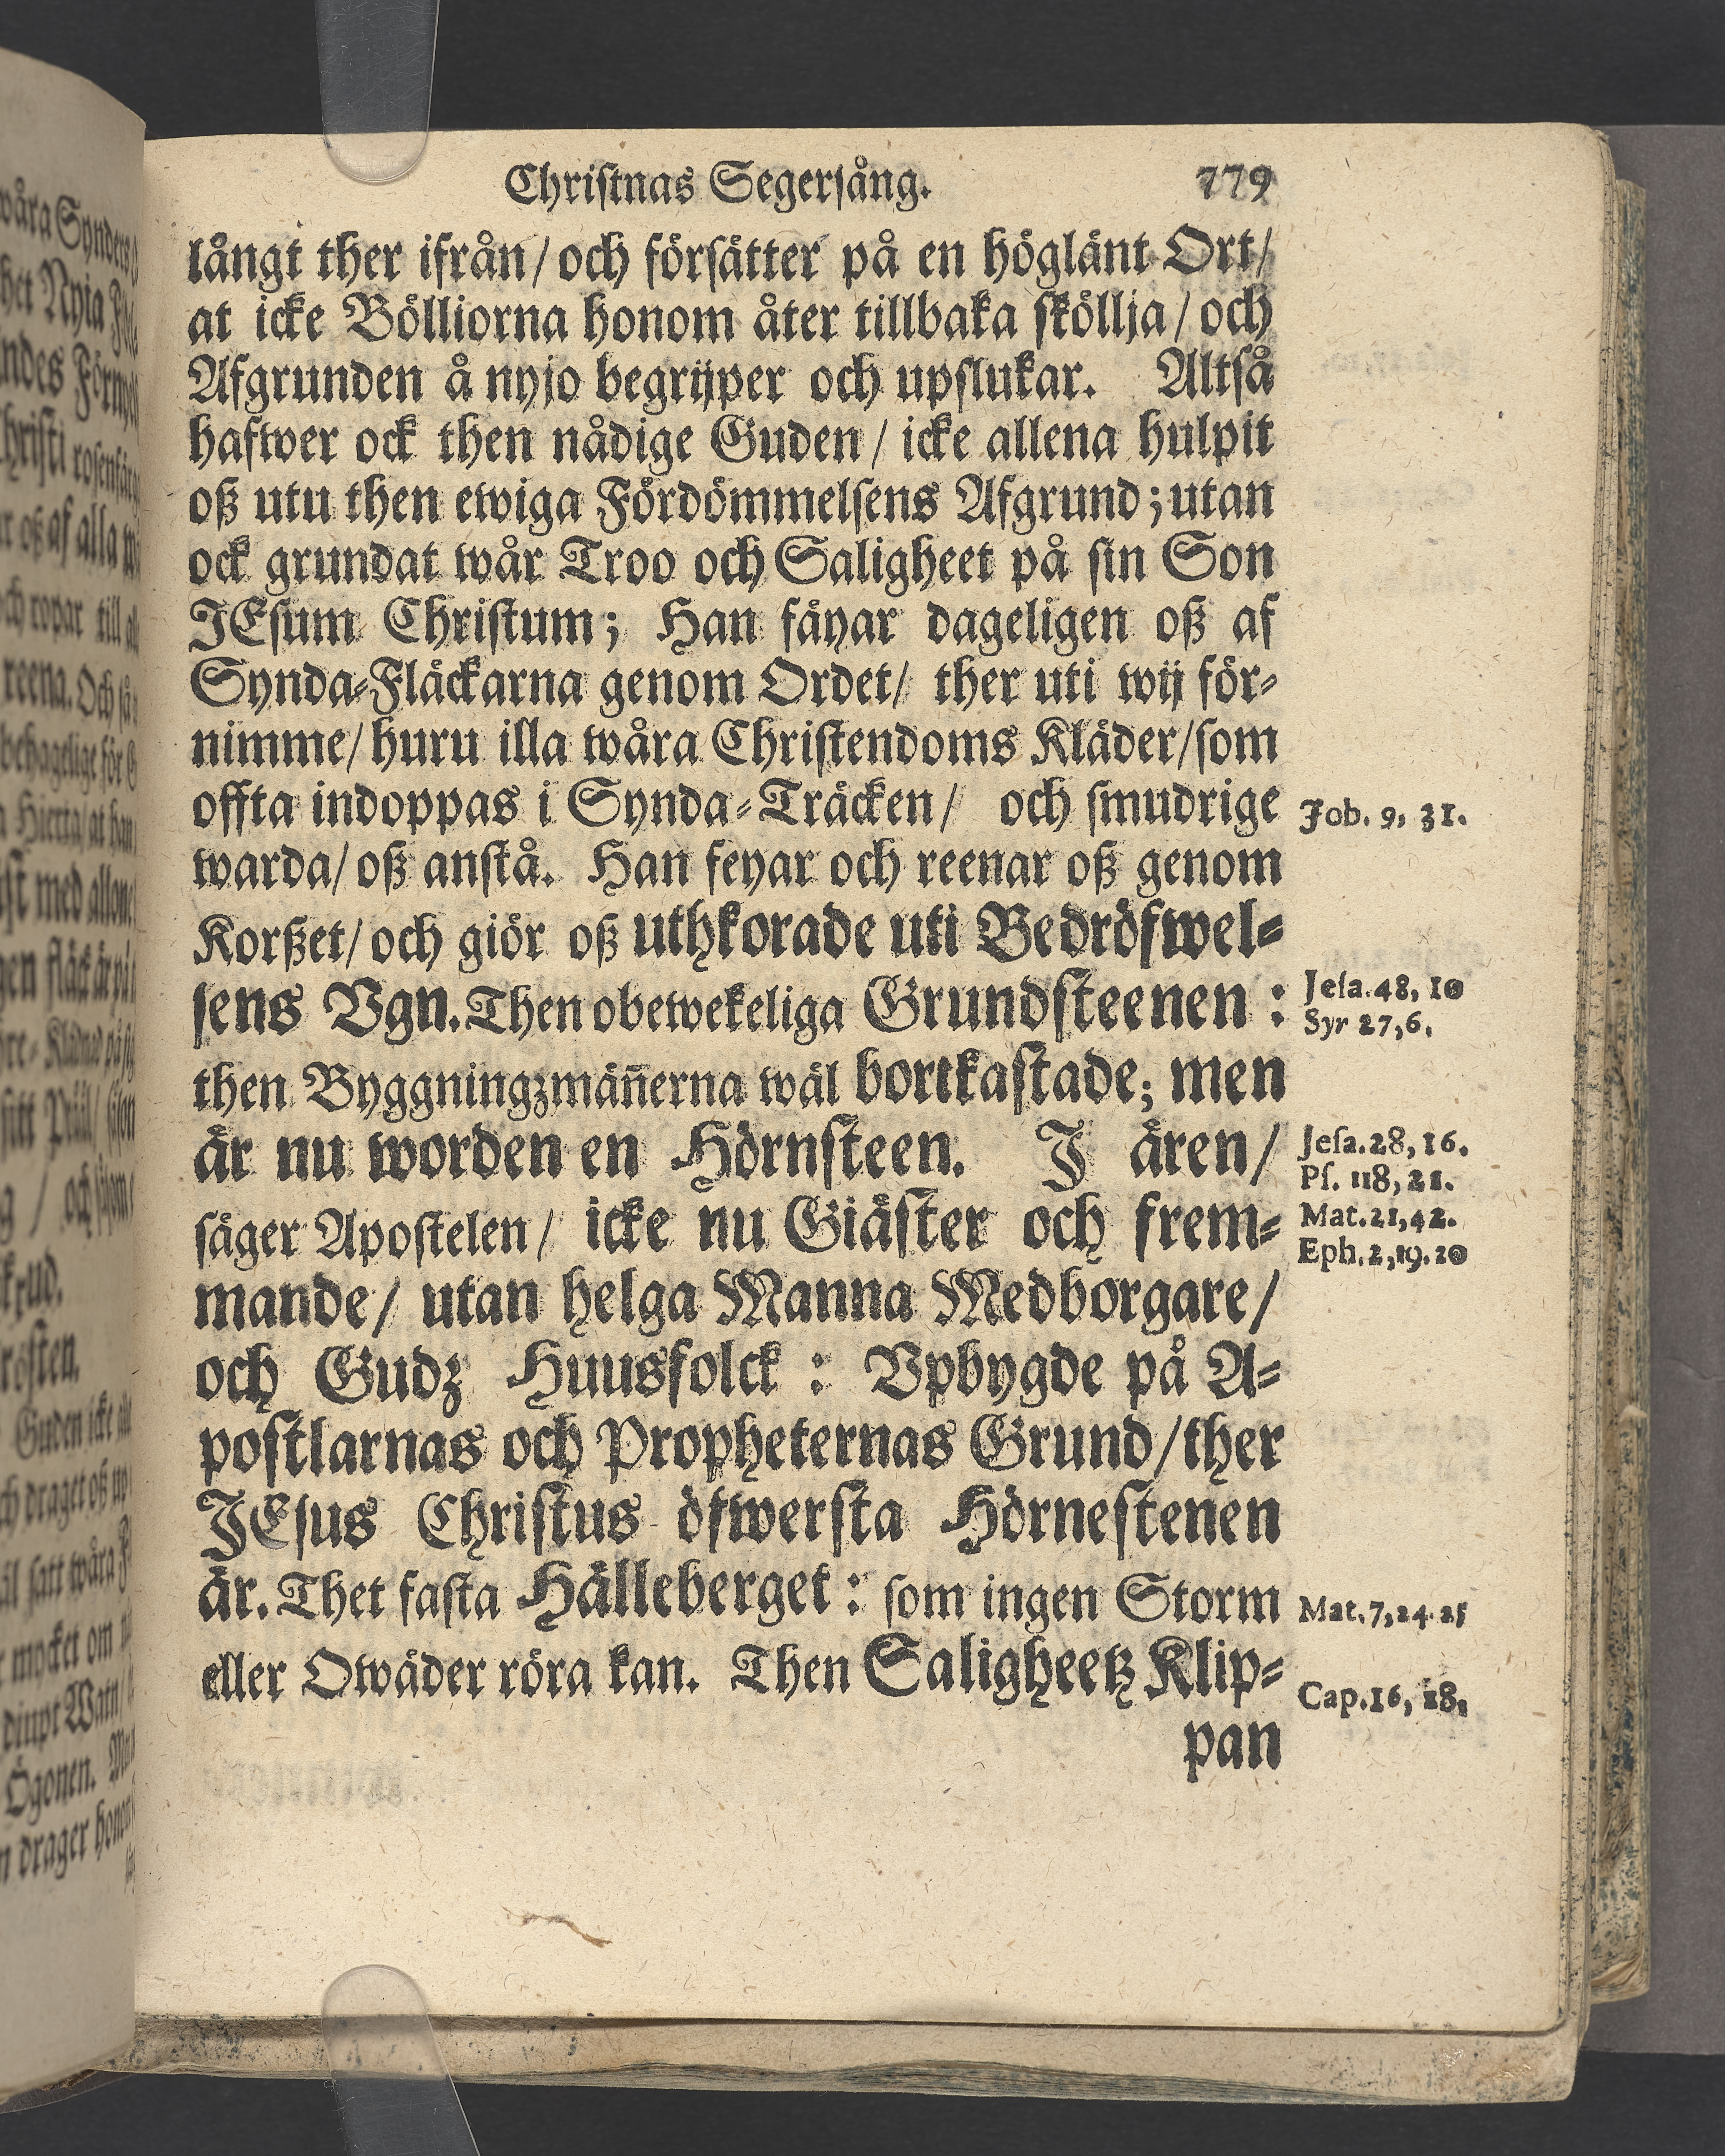 Christnas Segersång. 779
långt ther ifrån/ och försätter på en höglänt Ort/
at icke Bölliorna honom åter tillbaka sköllja/ och
Afgrunden å nyjo begrijper och upslukar. Altså
hafwer ock then nådige Guden/ icke allena hulpit
oß utu then ewiga Fördömmelsens Afgrund; utan
ock grundat wår Troo och Saligheet på sin Son
JEsum Christum; Han fäyar dageligen oß af
Synda-Fläckarna genom Ordet/ ther uti wij för-
nimme/ huru illa wåra Christendoms Kläder/ som
offta indoppas i Synda-Träcken/ och smudrige
Job. 9, 31.
warda/ oß anstå. Han feyar och reenar oß genom
Korßet/ och giör oß uthkorade uti Bedröfwel-
sens Vgn. Then obewekeliga Grundsteenen :
Jesa.48, 10
Syr 27,6.
then Byggningzmän̄erna wäl bortkastade; men
är nu worden en Hörnsteen. J ären/
Jesa.28, 16.
Ps. 118, 21.
säger Apostelen/ icke nu Giäster och frem-
Mat.21,42.
Eph.2,19.20
mande/ utan helga Manna Medborgare/
och Gudz Huusfolck : Vpbygde på A-
postlarnas och Propheternas Grund/ ther
JEsus Christus öfwersta Hörnestenen
är. Thet fasta Hälleberget : som ingen Storm
Mat.7,24.25
eller Owäder röra kan. Then Saligheetz Klip-
Cap.16, 18,
pan